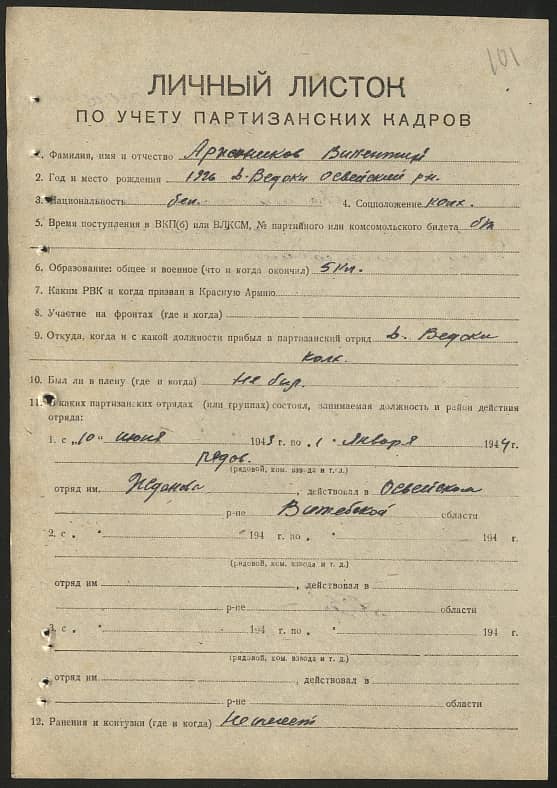 101
ЛИЧНЫЙ ЛИСТОК
ПО УЧЕТУ ПАРТИЗАНСКИХ КАДРОВ
1. Фамилия, имя и отчество Арженников Викентий
2. Год и место рождения 1926 д. Ведоки Освейский р-н.
3. Национальность бел. 4. Соцположение колх.
5. Время поступления в ВКП(б) или ВЛКСМ, № партийного или комсомольского билета б/п
6. Образование: общее и военное (что и когда окончил) 5 кл.
7. Каким РВК и когда призван в Красную Армию
8. Участие на фронтах (где и когда)
9. Откуда, когда и с какой должности прибыл в партизанский отряд д. Ведоки
колх.
10. Был ли в плену (где и когда) не был.
11. В каких партизанских отрядах (или группах) состоял, занимаемая должность и район действия
отряда:
1. с „10“ июня 1943 г. по „1“ января 1944 г.
рядов.
(рядовой, ком. взвода и т. д.)
отряд им. Жданова, действовал в Освейском
р-не Витебской области
2. с „ “ 194 г. по „ “ 194 г.
(рядовой, ком. взвода и т. д.)
отряд им , действовал в
р-не области
3. с „ “ 194 г. по „ “ 194 г.
(рядовой, ком. взвода и т. д.)
отряд им , действовал в
р-не области
12. Ранения и контузии (где и когда) Не имеет